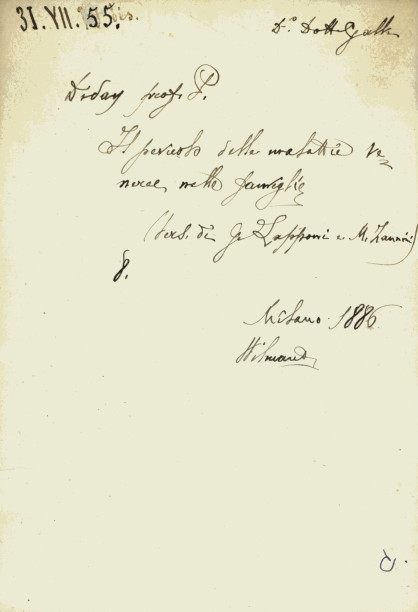 31.VII.55.
D.º Dott Galli
Diday prof. P.
Il pericolo delle malattie ve-
neree nelle famiglie
(Vers. di G Lapponi e M. Zannini)
8.
Milano 1886
Wilmant